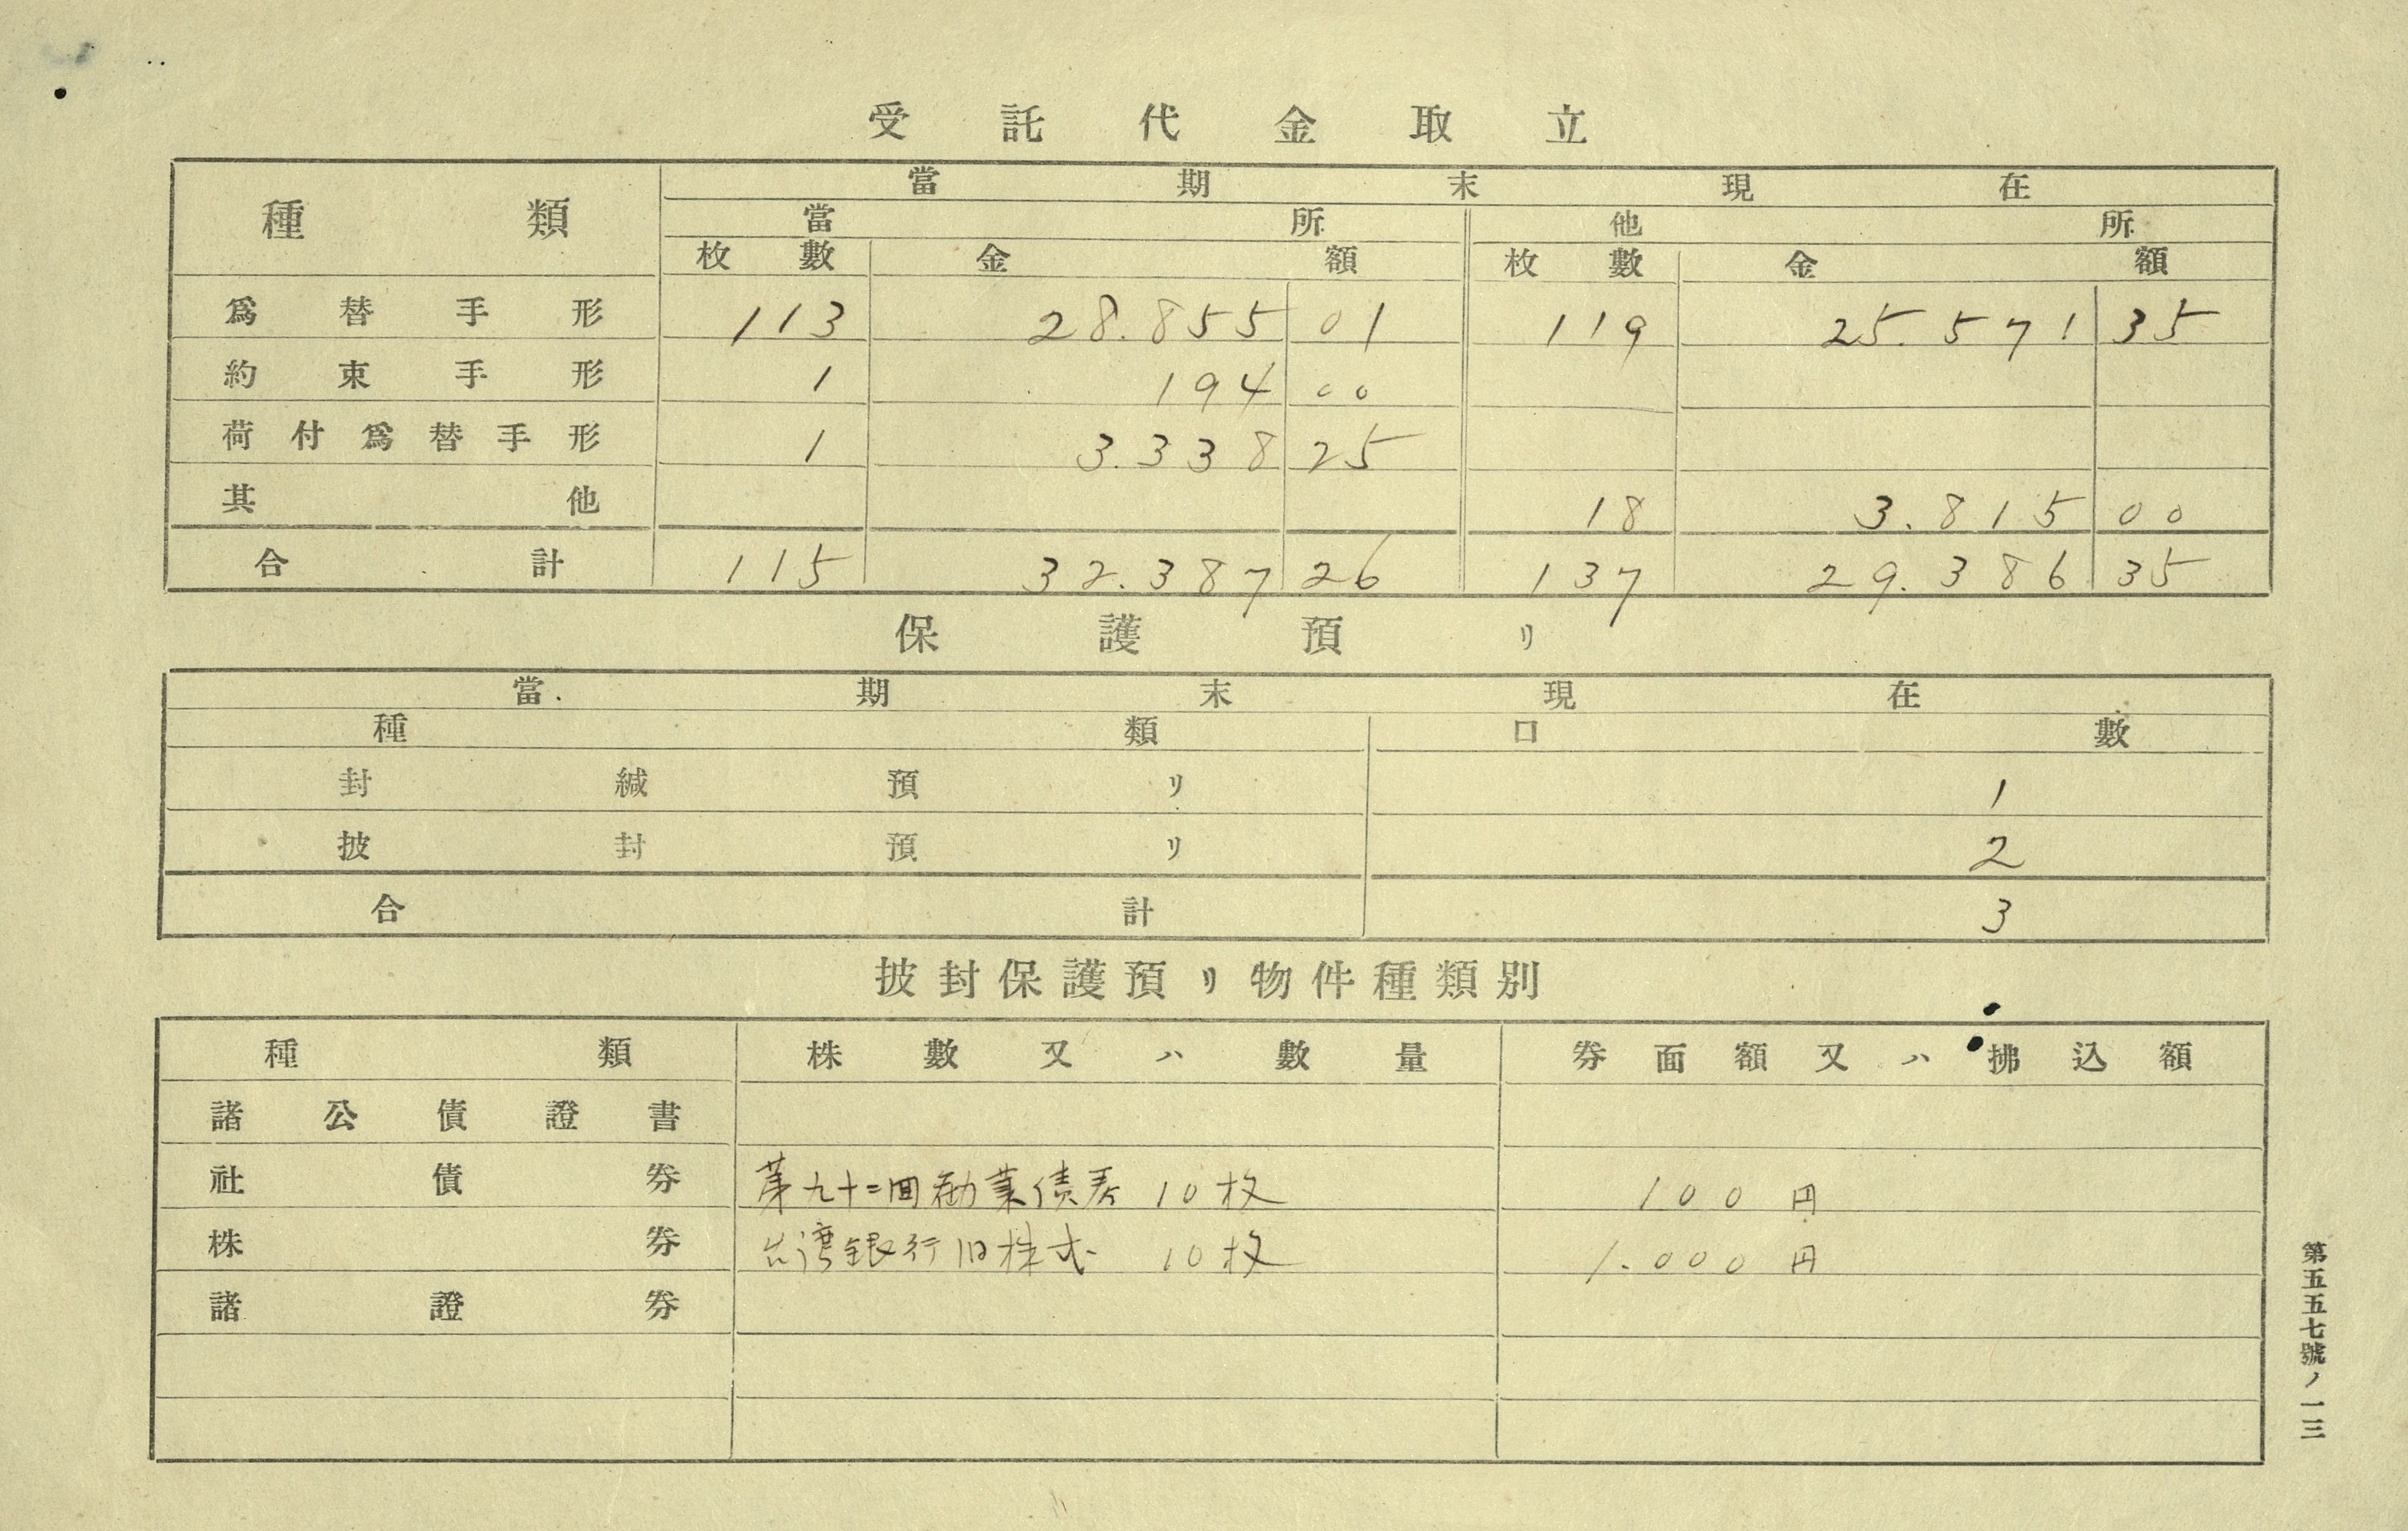 受託代金取立
種類 當期末現在
當所 他所
枚數 金額 枚數 金額
爲替手形 113 28.855 01 119 25.571 35
約束手形 1 194 00
荷付爲替手形 1 3.338 25
其他 18 3.815 00
合計 115 32.387 26 137 29.386 35
保護預リ
當期末現在
種類 口數
封緘預リ 1
披封預リ 2
合計 3
披封保護預リ物件種類別
種類 株數又ハ數量 券面額又ハ拂込額
諸公債證書
社債券 第九十二回勧業債券 10枚 100円
株券 台湾銀行旧株式 10枚 1.000円
諸證券
第五五七號ノ一三